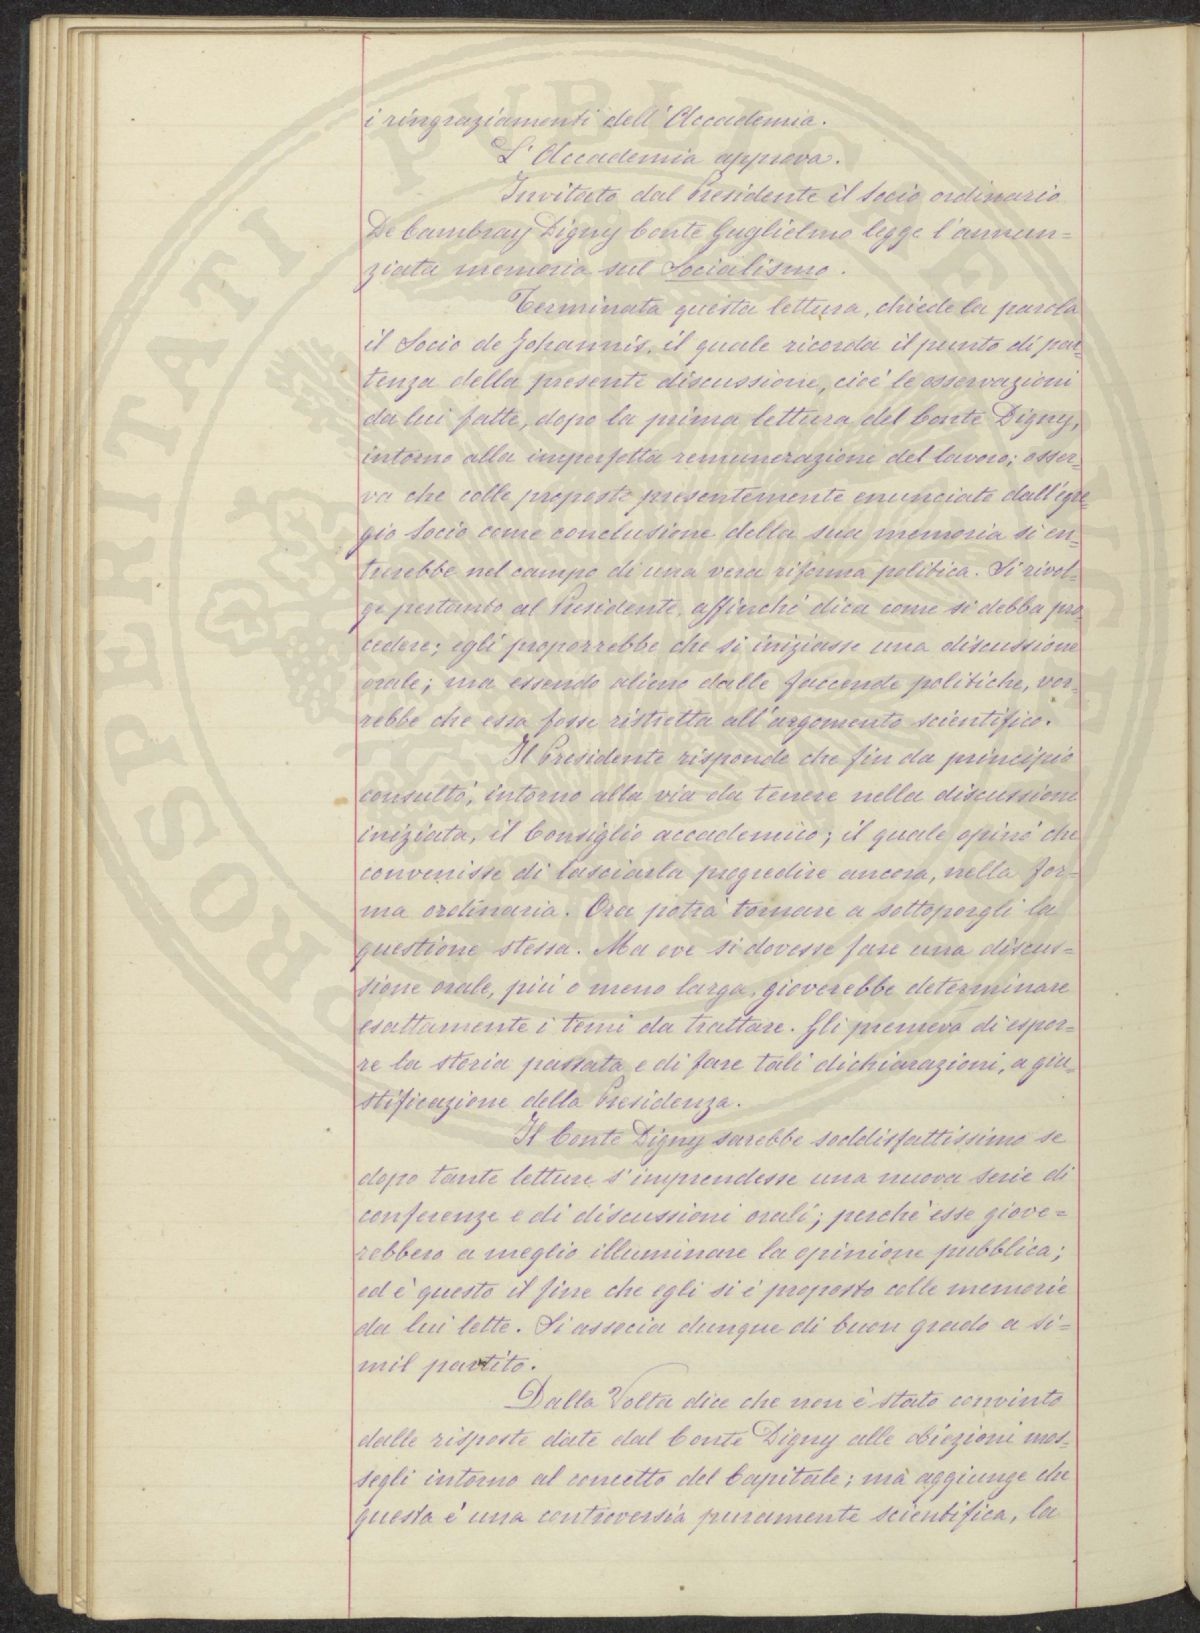 i ringraziamenti dell'Accademia.
L'Accademia approva.
Invitato dal Presidente il Socio ordinario
De Cambray Digny Conte Guglielmo legge l'annun=
ziata memoria sul Socialismo.
Terminata questa lettura, chiede la parola
il Socio de Johannis, il quale ricorda il punto di par=
tenza della presente discussione, cioè le osservazioni
da lui fatte, dopo la prima lettura del Conte Digny,
intorno alla imperfetta remunerazione del lavoro; osser=
va che colle proposte presentemente enunciate dall'egre=
gio Socio come conclusione della sua memoria si en=
trerebbe nel campo di una vera riforma politica. Si rivol=
ge pertanto al Presidente, affinché dica come si debba pro=
cedere; egli proporrebbe che si iniziasse una discussione
orale; ma essendo alieno dalle faccende politiche, vor=
rebbe che essa fosse ristretta all'argomento scientifico.
Il Presidente risponde che fin da principio
consultò, intorno alla via da tenere nella discussione
iniziata, il Consiglio accademico; il quale opinò che
convenisse di lasciarla progredire ancora, nella for=
ma ordinaria. Ora potrà tornare a sottoporgli la
questione stessa. Ma ove si dovesse fare una discus=
sione orale, più o meno larga, gioverebbe determinare
esattamente i temi da trattare. Gli premeva di espor=
re la storia passata e di fare tali dichiarazioni, a giu=
stificazione della Presidenza.
Il Conte Digny sarebbe soddisfattissimo se
dopo tante letture s'imprendesse una nuova serie di
conferenze e di discussioni orali; perché esse giove=
rebbero a meglio illuminare la opinione pubblica;
ed è questo il fine che egli si è proposto colle memorie
da lui lette. Si associa dunque di buon grado a si=
mil partito.
Dalla Volta dice che non è stato convinto
dalle risposte date dal Conte Digny alle obiezioni mos=
segli intorno al concetto del Capitale; ma aggiunge che
questa è una controversia puramente scientifica, la
PROSPERITATI PUBLICAE AUGENDAE